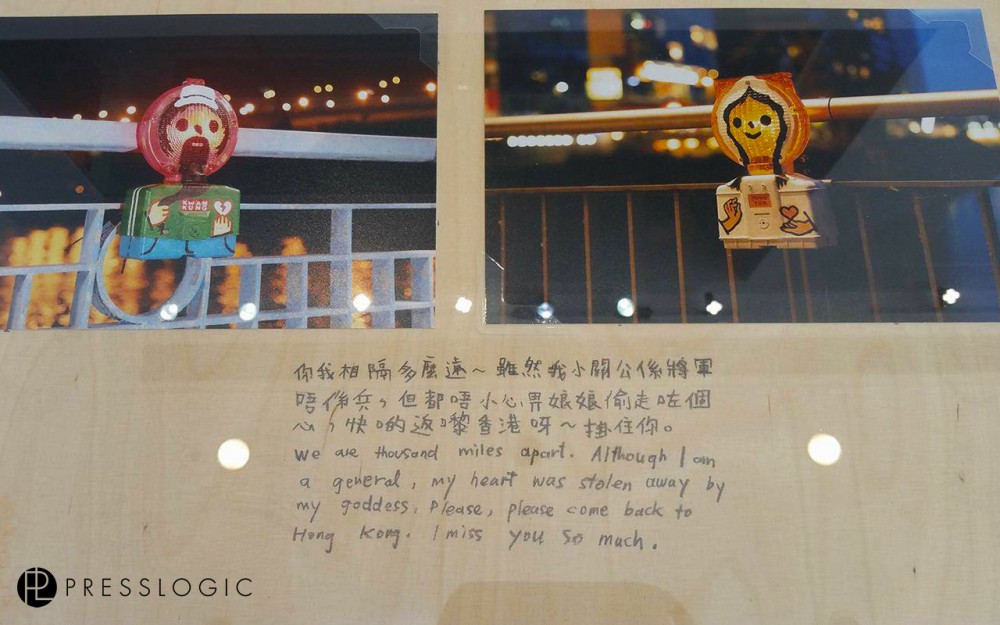 KWAN
KUNG
你我相隔多麼遠～雖然我小關公係將軍
唔係兵，但都唔小心畀娘娘偷走咗個
心，快啲返嚟香港呀～掛住你。
We are thousand miles apart. Although I am
a general, my heart was stolen away by
my goddess. Please, please come back to
Hong Kong. I miss you so much.
PRESSLOGIC